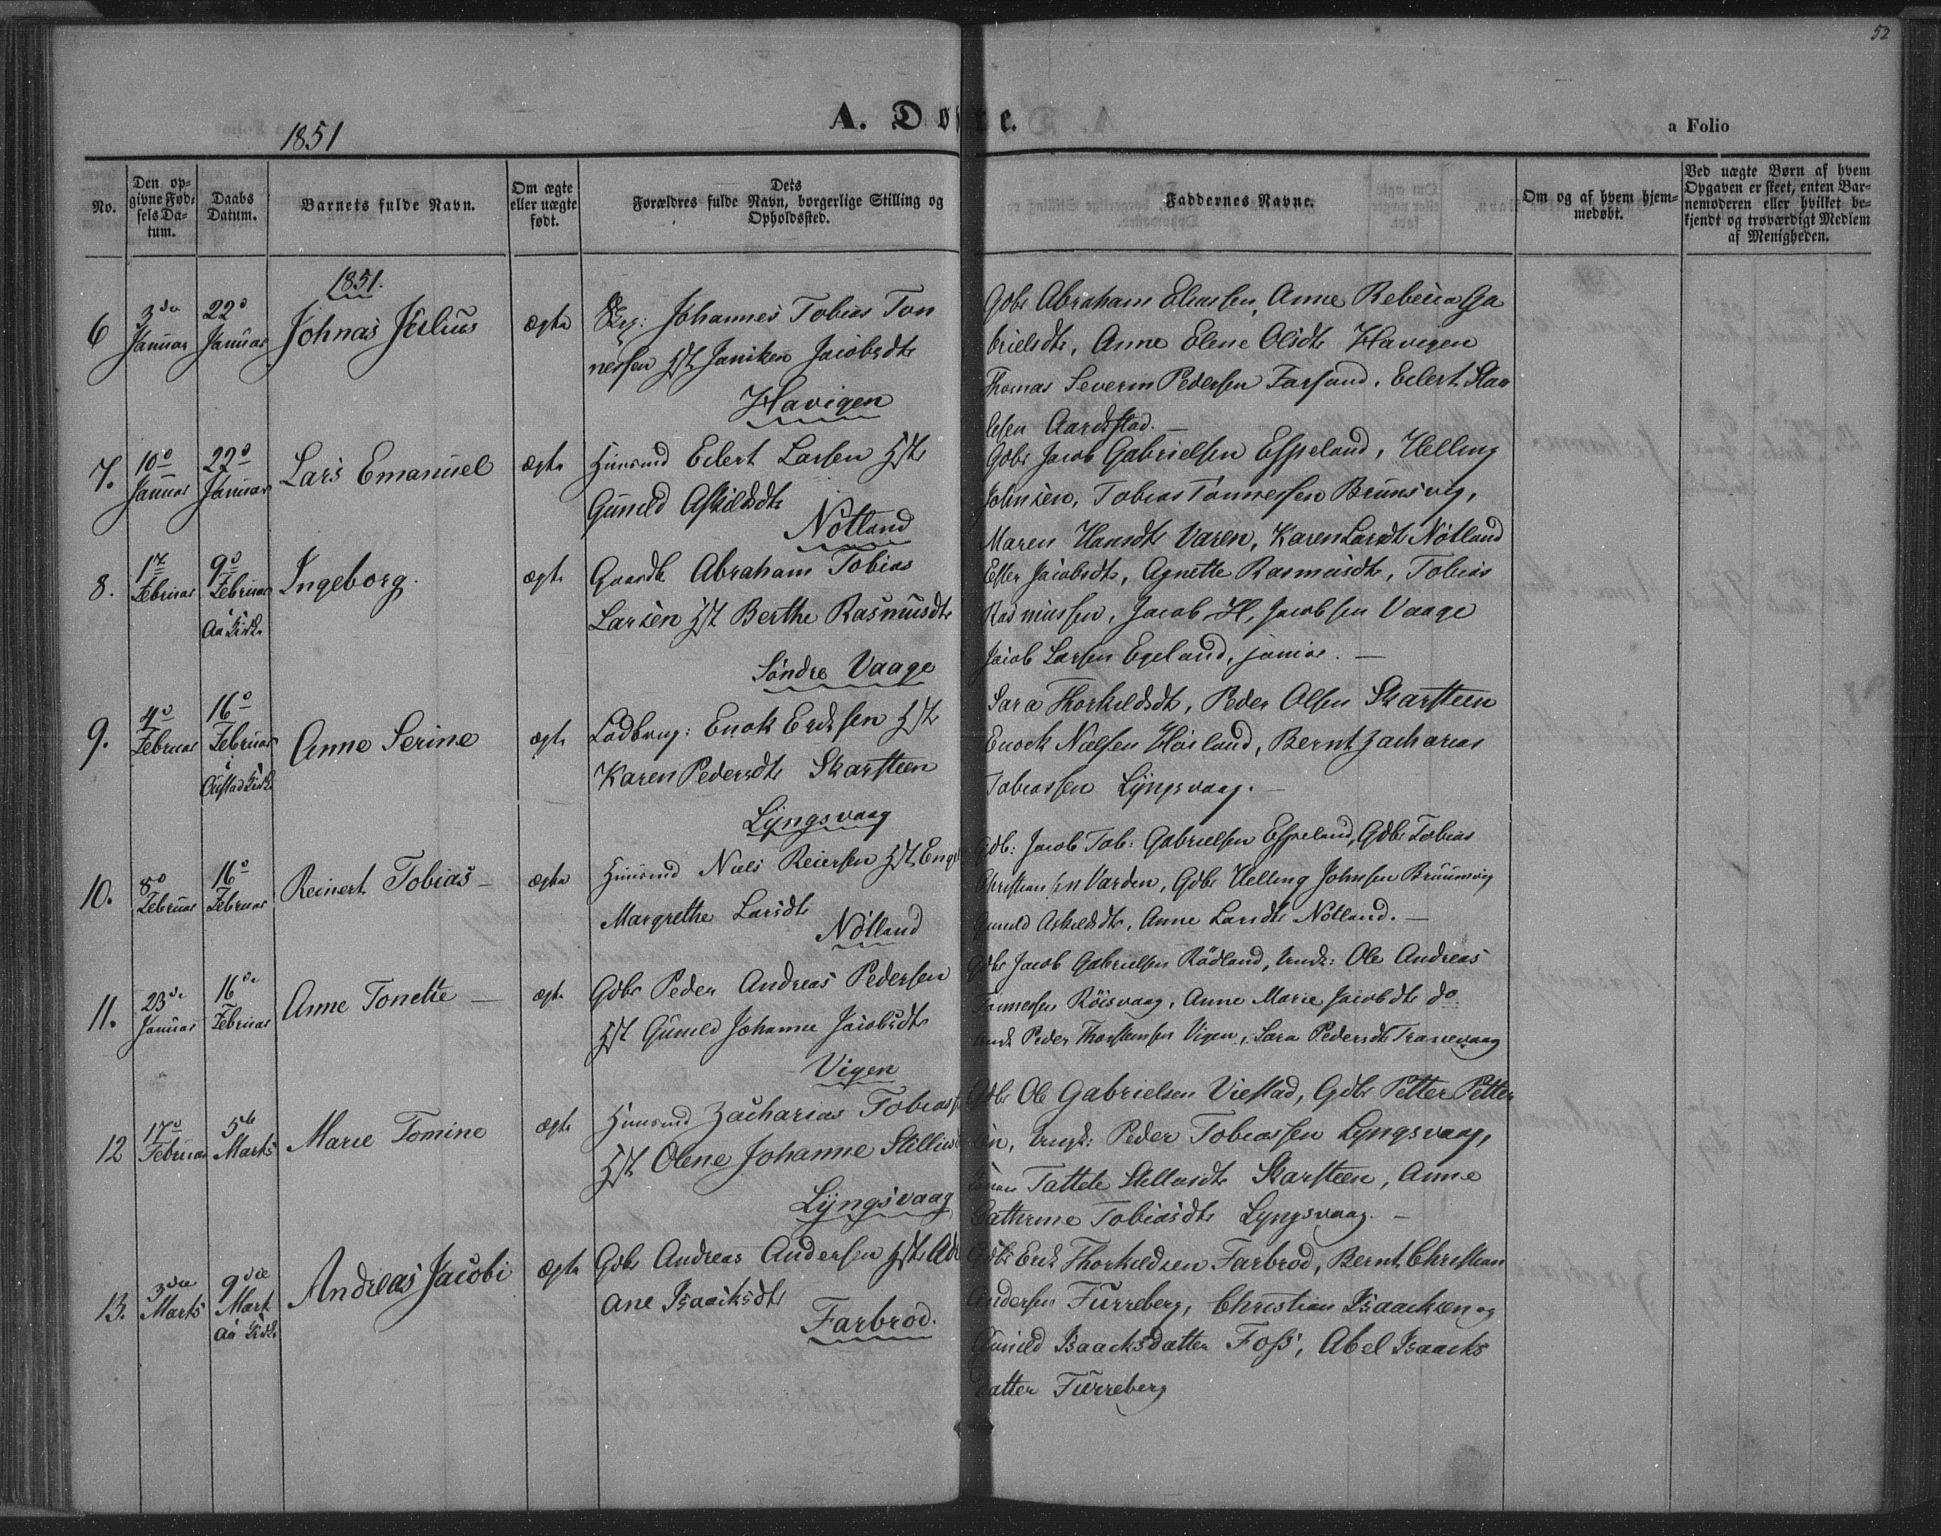 52
1851
A. Do e.
a Folio
No.
Den op-
givne Fød-
sels Da-
tum.
Daabs
Datum.
Barnets fulde Navn.
Om ægte
eller uægte
født.
Dets
Forældres fulde Navn, borgerlige Stilling og
Opholdssted.
Faddernes Navne.
Om og af hvem hjem-
medøbt.
Ved uægte Børn af hvem
Opgaven er skeet, enten Bar-
nemoderen eller hvilket be-
kjendt og troværdigt Medlem
af Menigheden.
1851.
6
3de
Januar
22d
Januar
Johnas Julius
ægte
Johannes Tobias Ton
nessen Hst Janiken Jacobsdt
Havigen
Gdbr Abraham Eliassen, Anne Rebecca Ga
brielsdt, Anne Elene Olsdt Havigen
Thomas Severin Pedersen Farsund, Eilert Staa
lesen Aardstad. —
7.
10d
Januar
22d
Januar
Lars Emanuel
ægte
Huusmd Eilert Larsen Hst
Guneld Askildsdt
Nötland
Gdbr Jacob Gabrielsen Espeland, Helling
Johnsen, Tobias Tönnessen Brunsvig,
Maren Hansdt Varen, Karen Larsdt Nötland
8.
17
Februar
9d
Februar
Aa Kirke
Ingeborg.
ægte
Gaardbr Abraham Tobias
Larsen Hst Berthe Rasmusdt
Söndre Vaage
Ester Jacobsdt, Agnette Rasmusdt, Tobias
Rasmussen, Jacob H. Jacobsen Vaage
Jacob Larsen Egeland, junior. —
9.
4d
Februar
16d
Februar
i
Austad Kirke
Anne Serine
ægte
Ladbrug: Enok Eriksen Hst
Karen Pedersdt Skarsteen
Lyngsvaag
Sara Thorkildsdt, Peder Olsen Skarsteen
Enock Nielsen Høiland, Bernt Zacharias
Tobiassen Lyngsvaag. —
10.
8d
Februar
16d
Februar
Reinert Tobias —
ægte
Huusmd Niels Reiersen Hst Eng
Margrethe Larsdt
Nötland
Gdb: Jacob Tob: Gabrielsen Espeland, Gdbr Tobias
Christiansen Varden, Gdbr Helling Johnsen Bruunsvig
Guneld Askildsdt, Anne Larsdt Nötland. —
11.
23de
Januar
16de
Februar
Anne Tonette —
ægte
Gdbr Peder Andreas Pedersen
Hst Guneld Johanne Jacobsdt
Vigen
Gdbr Jacob Gabrielsen Rödland, Ungk: Ole Andreas
Tönnessen Röisvaag, Anne Marie Jacobsdt do
Ungk Peder Thorstensen Vigen, Sara Pedersdt Tranevaag
12
17d
Februar
5te
Marts
Marie Tomine
ægte
Huusmd Zacharias Tobias
Hst Olene Johanne Stillius
Lyngsvaag
Gdbr Ole Gabrielsen Viestad, Gdbr Petter Petter
sen, Ungk: Peder Tobiassen Lyngsvaag,
Tattele Stellasdt Skarsteen, Anne
Cathrine Tobiasdt Lyngsvaag. —
13.
3die
Marts
9die
Mart
Aa Kirke
Andreas Jacobi
ægte
Gdbr Andreas Andersen Hst Ad
ane Isaacksdt
Farbrod.
Gdbr Erik Thorkildsen Farbrod, Bernt Christian
Andersen Furreberg, Christian Isaacksen og
Guneld Isaacksdatter Foss, Abel Isaacks
datter Furreberg